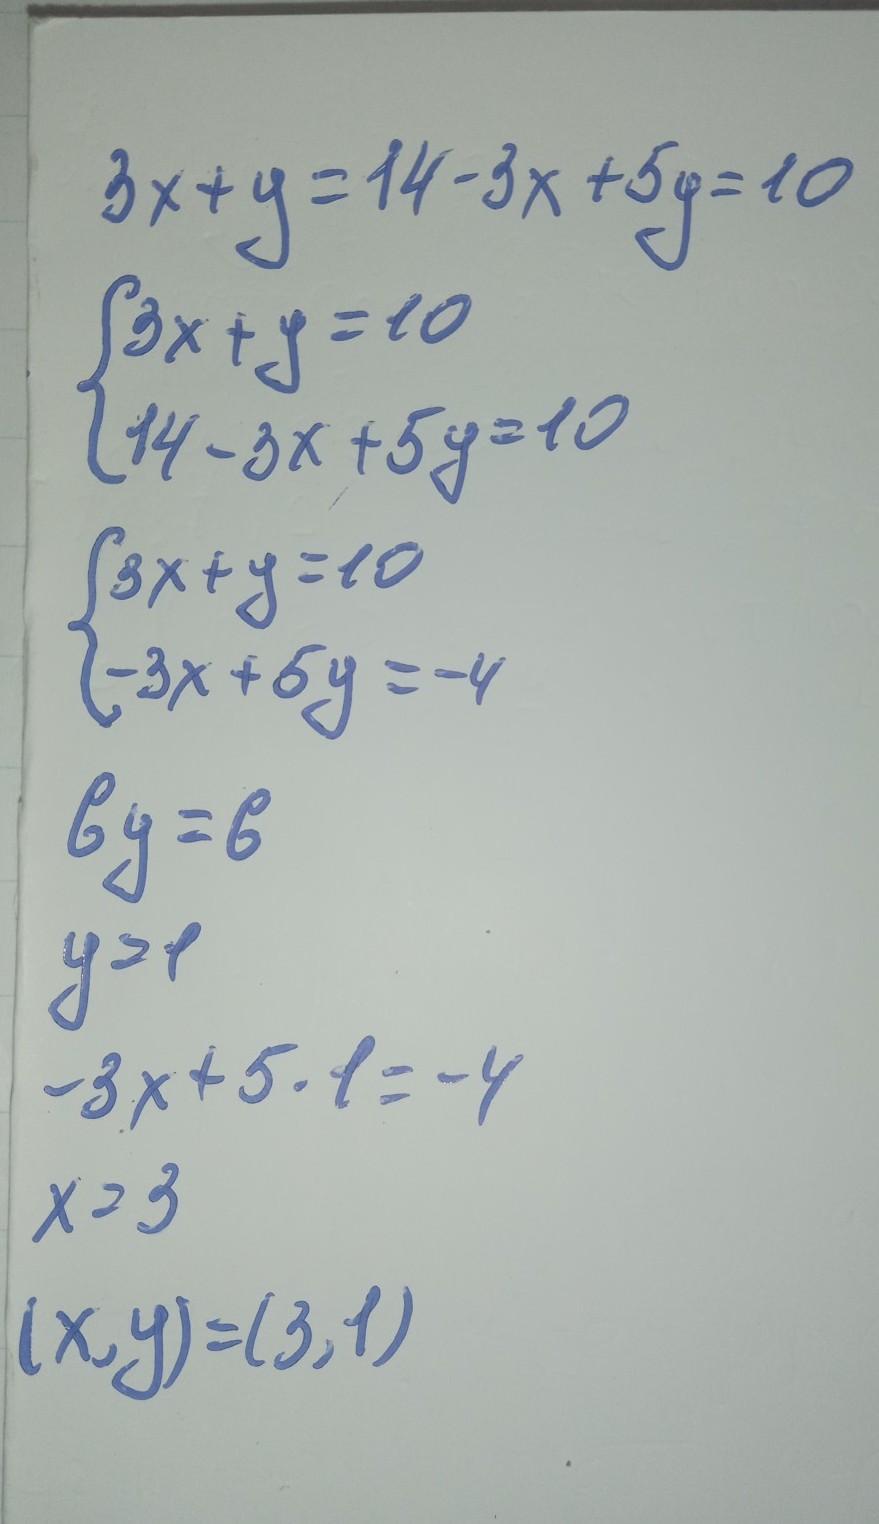 3x+y=14-3x+5y=10
{3x+y=10
14-3x+5y=10
{3x+y=10
-3x+5y=-4
6y=6
y=1
-3x+5·1=-4
x=3
(x,y)=(3,1)